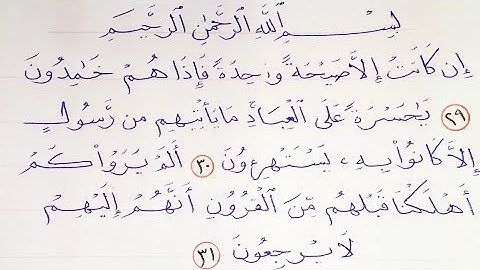 بِسْمِ ٱللَّهِ ٱلرَّحْمَٰنِ ٱلرَّحِيمِ
إِن كَانَتْ إِلَّا صَيْحَةً وَٰحِدَةً فَإِذَا هُمْ خَٰمِدُونَ
٢٩ يَٰحَسْرَةً عَلَى ٱلْعِبَادِ مَا يَأْتِيهِم مِّن رَّسُولٍ
إِلَّا كَانُوا۟ بِهِۦ يَسْتَهْزِءُونَ ٣٠ أَلَمْ يَرَوْا۟ كَمْ
أَهْلَكْنَا قَبْلَهُم مِّنَ ٱلْقُرُونِ أَنَّهُمْ إِلَيْهِمْ
لَا يَرْجِعُونَ ٣١